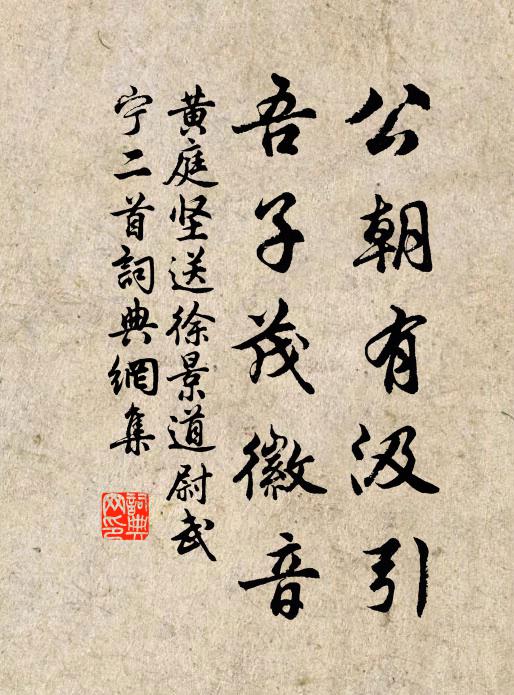 公朝有汲引
吾子茂徽音
黄庭坚送徐景道尉武
宁二首詞典網集
詞典
网印